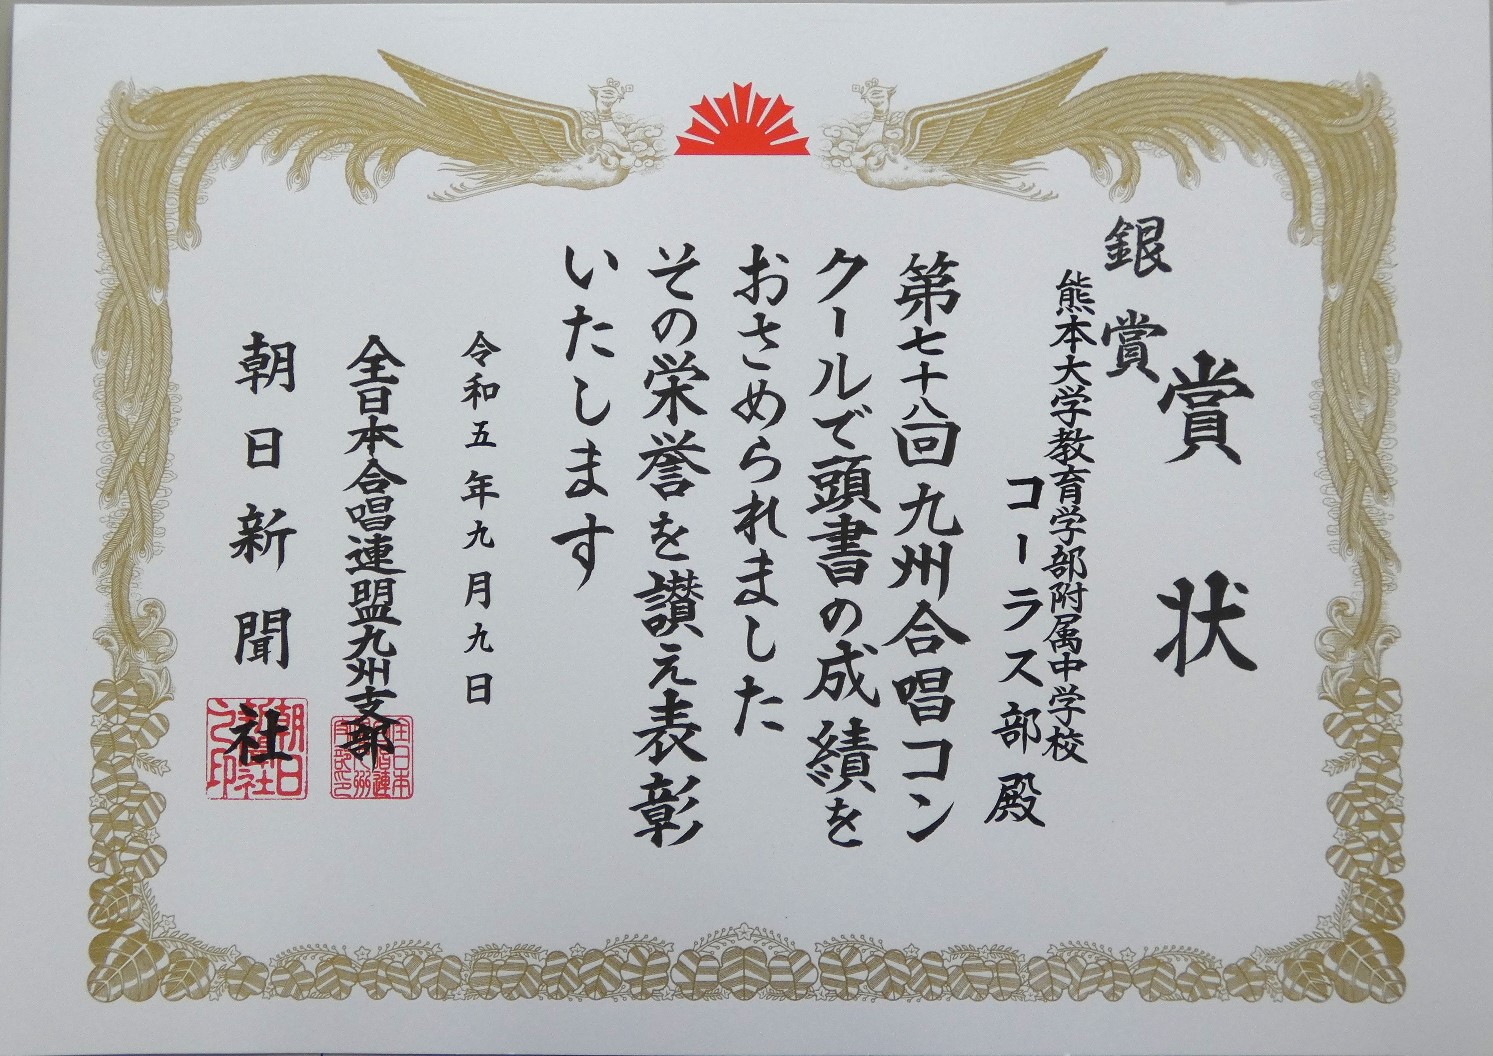 賞状
銀賞
熊本大学教育学部附属中学校
コーラス部殿
第七十八回九州合唱コン
クールで頭書の成績を
おさめられました
その栄誉を讃え表彰
いたします
令和五年九月九日
全日本合唱連盟九州支部
朝日新聞社
朝日新聞社之印